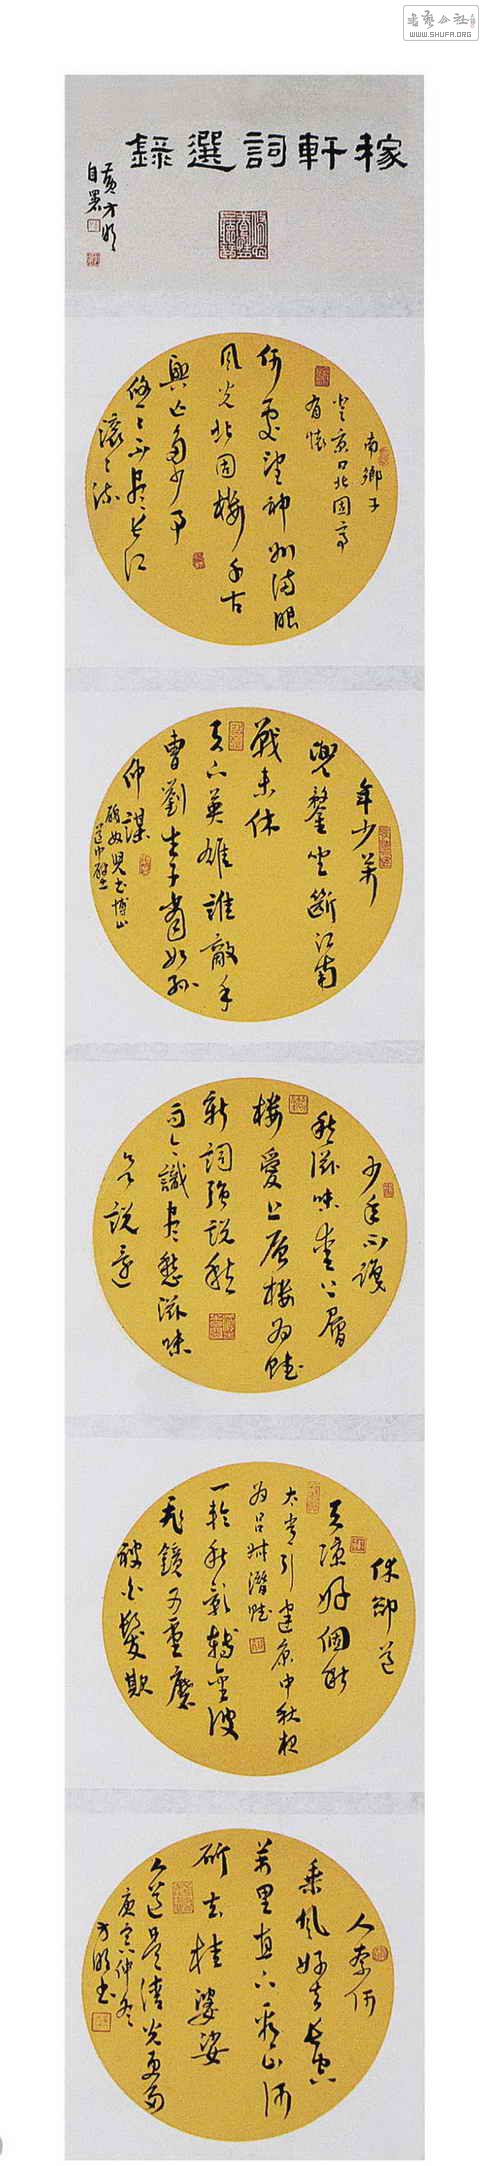 書藝公社
WWW.SHUFA.ORG
稼軒詞選錄
自署
南鄉子
登京口北固亭
有懷
何處望神州滿眼
風光北固樓千古
興亡多少事
悠悠不盡長江
滾滾流
年少萬
兜鍪坐斷江南
戰未休
天下英雄誰敵手
曹劉生子當如孫
仲謀
醜奴兒書博山
道中壁
少年不識
愁滋味愛上層
樓愛上層樓為賦
新詞強說愁
而今識盡愁滋味
欲說還
休卻道
天涼好個秋
太常引建康中秋夜
為呂叔潛賦
一輪秋影轉金波
飛鏡又重磨
被白髮欺
人奈何
乘風好去長空
萬里直下看山河
斫去桂婆娑
人道是清光更多
庚寅仲冬
方明書